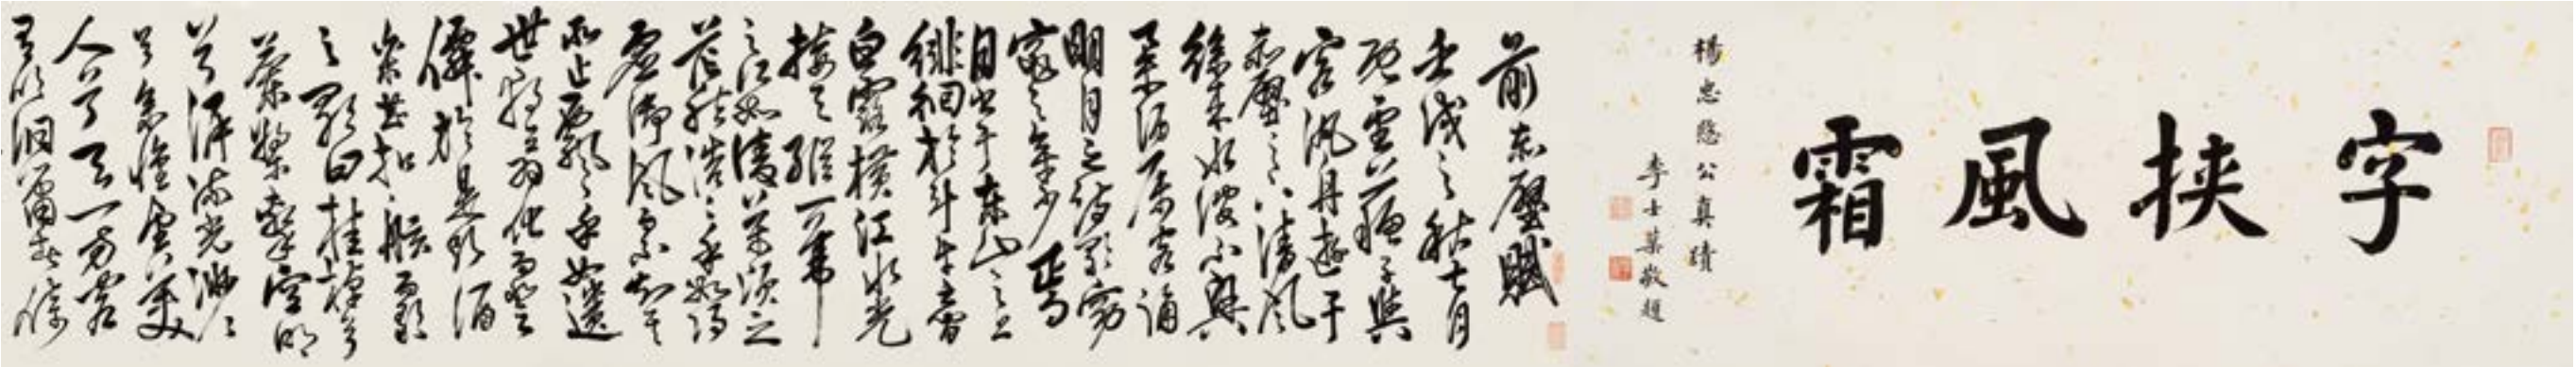 字挟風霜
楊忠愍公真蹟
李士棻敬題
前赤壁賦
壬戌之秋七月
既望蘇子與
客汎舟遊于
赤壁之下清風
徐來水波不興
舉酒屬客誦
明月之詩歌窈
窕之章少焉
月出于東山之上
徘徊於斗牛之間
白露橫江水光
接天縱一葦
之所如凌萬頃之
茫然浩浩乎如馮
虛御風而不知其
所止飄飄乎如遺
世獨立羽化而登
僊於是飲酒
樂甚扣舷而歌
之歌曰桂棹兮
蘭槳擊空明
兮泝流光渺渺
兮余懷望美
人兮天一方客
有吹洞簫者倚